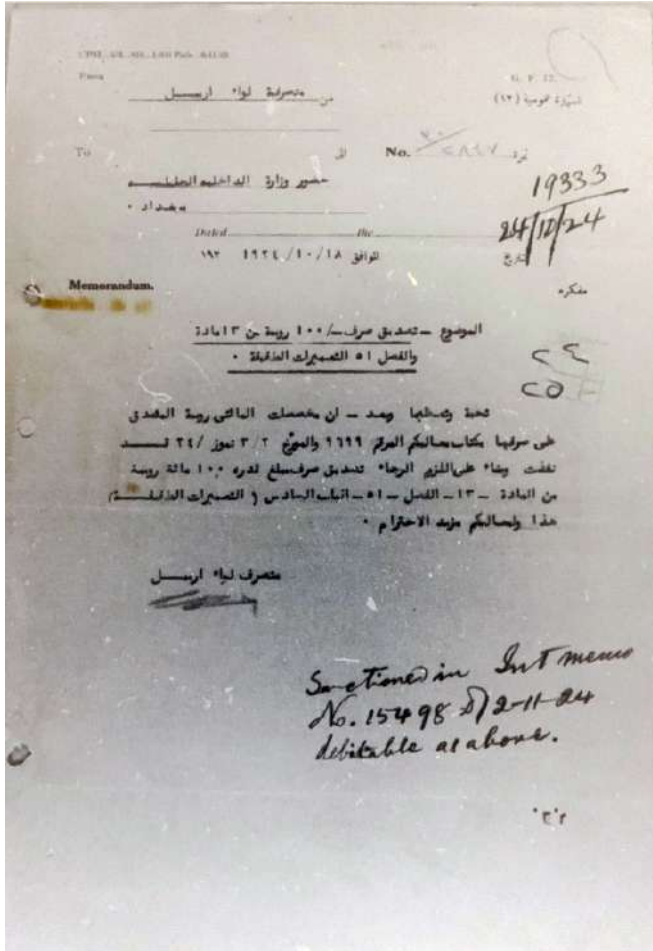 From
G. F. 12.
من متصرفية لواء اربيل
استمارة عمومية (١٢)
To
الى
No.
نمرة
حضور وزارة الداخلية الجليلة
19333
بغداد ٠
24/10/24
Dated the
الموافق ١٨/١٠/١٩٢٤ ١٩٢
تاريخ
Memorandum.
مفكرة
الموضوع – تصديق صرف -/١٠٠ روبية من ١٣ مادة
والفصل ٥١ التعميرات الطفيفة ٠
٢٤
٢٥
تحية وتعظيما وبعد – ان مخصصات المائتي روبية المصدق
على صرفها بكتاب معاليكم المرقم ٩٦٩٩ والمؤرخ ٣/٢ تموز /٢٤ قد
نفدت وبناء على اللزوم الرجاء تصديق صرف مبلغ قدره ١٠٠ مائة روبية
من المادة – ١٣ – الفصل – ٥١ – الباب السادس ( التعميرات الطفيفة )
هذا ولمعاليكم مزيد الاحترام ٠
متصرف لواء اربيل
Sanctioned in Int memo
No. 15498 d/ 2-11-24
debitable as above.